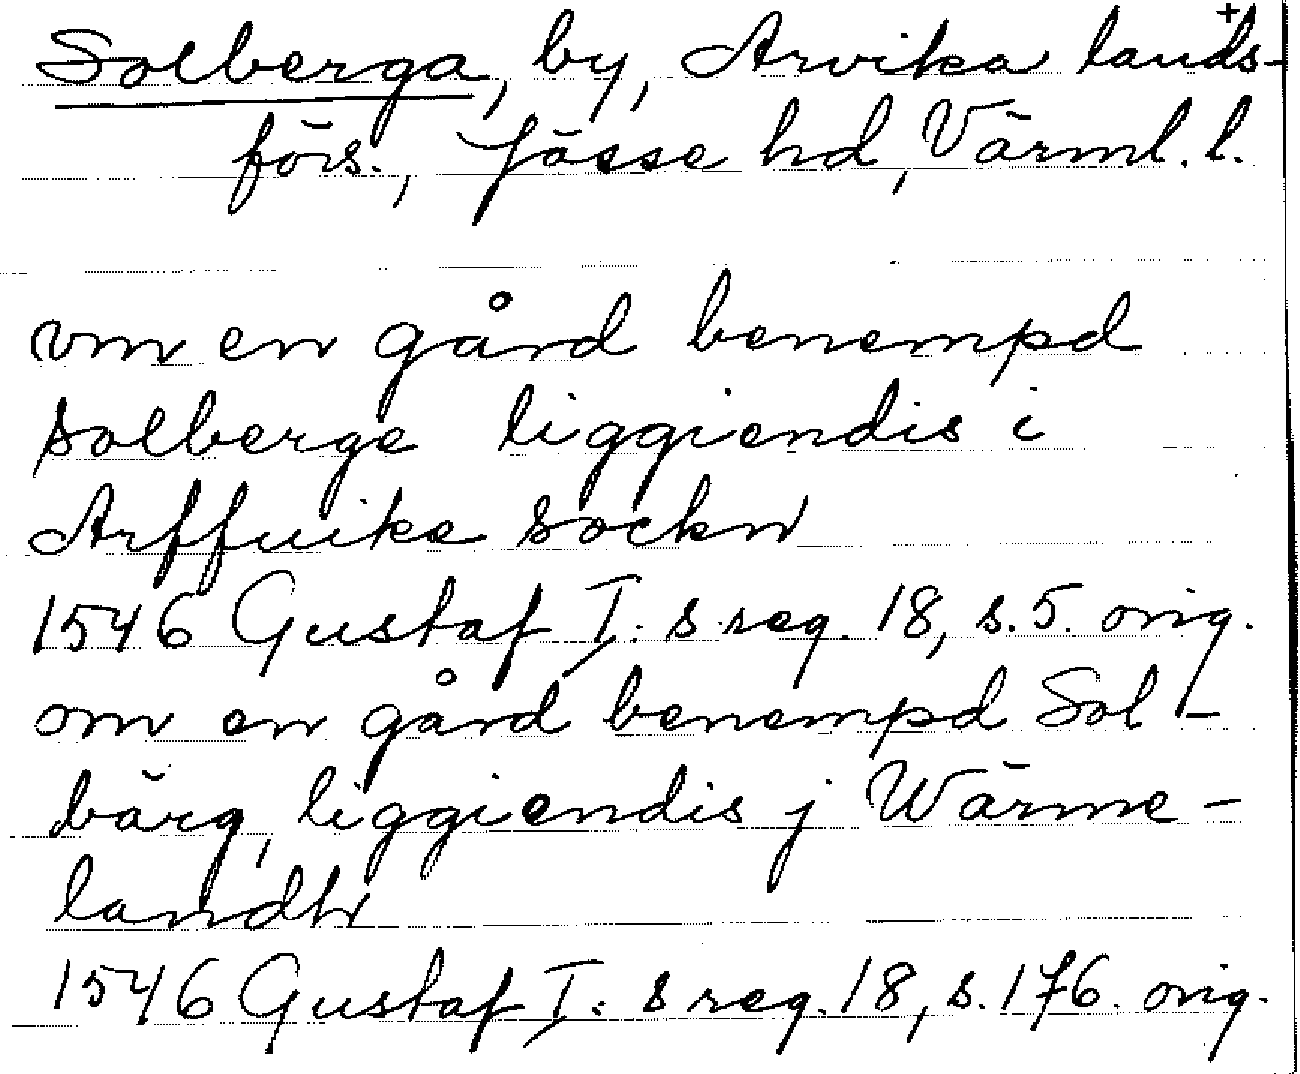 Solberga, by, Arvika lands-
förs., Jösse hd, Värml. l.
vm en gård benempd
solberge liggiendis i
Arffuike sockn
1546 Gustaf I:s reg. 18, s. 5. orig.
om en gård benempd Sol-
bärg, liggiendis j Wärme-
landh
1546 Gustaf I:s reg. 18, s. 176. orig.